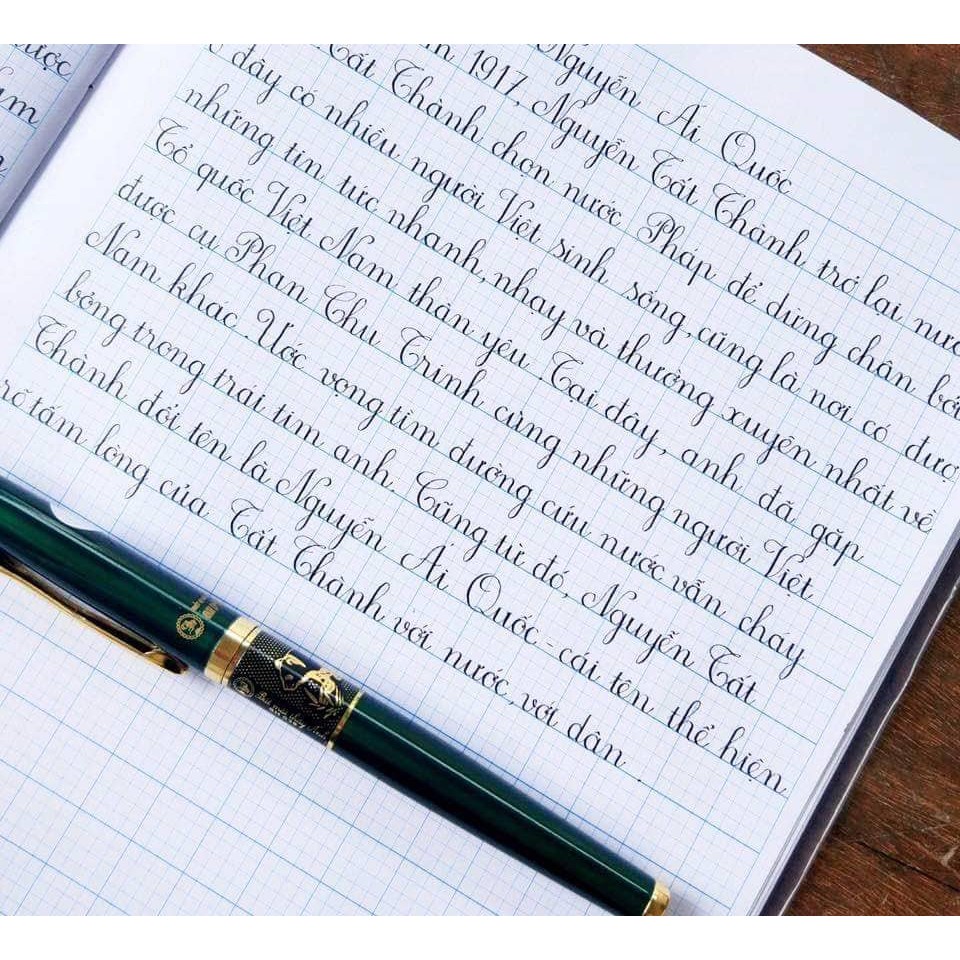 Nguyễn Ái Quốc
1917, Nguyễn Tất Thành trở lại
Tất Thành chọn nước Pháp để dừng chân bởi
đây có nhiều người Việt sinh sống, cũng là nơi có đượ
những tin tức nhanh, nhạy và thường xuyên nhất về
Tổ quốc Việt Nam thân yêu. Tại đây, anh đã gặp
được cụ Phan Chu Trinh cùng những người Việt
Nam khác. Ước vọng tìm đường cứu nước vẫn cháy
bỏng trong trái tim anh. Cũng từ đó, Nguyễn Tất
Thành đổi tên là Nguyễn Ái Quốc - cái tên thể hiện
rõ tấm lòng của Tất Thành với nước, với dân.